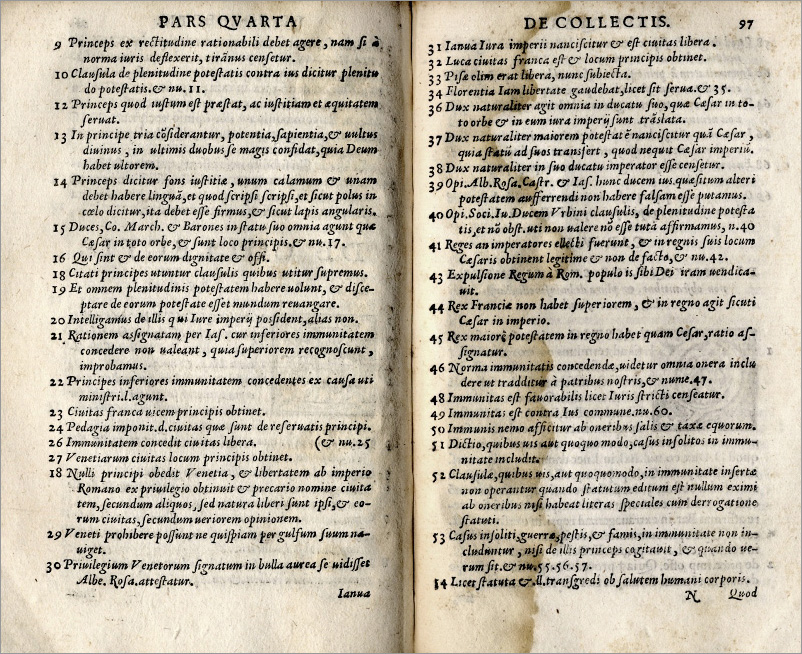 PARS QVARTA
9 Princeps ex rectitudine rationabili debet agere, nam si à
norma iuris deflexerit, tirãnus censetur.
10 Clausula de plenitudine potestatis contra ius dicitur plenitu
do potestatis.& nu.11.
12 Princeps quod iustum est præstat, ac iustitiam et æquitatem
seruat.
13 In principe tria cõsiderantur, potentia,sapientia,& uultus
diuinus, in ultimis duobus se magis confidat,quia Deum
habet ultorem.
14 Princeps dicitur fons iustitiæ, unum calamum & unam
debet habere linguã,et quod scripsi scripsi,et sicut polus in
cœlo dicitur,ita debet esse firmus,& sicut lapis angularis.
15 Duces,Co. March. & Barones in statu suo omnia agunt quæ
Cæsar in toto orbe,& sunt loco principis.& nu.17.
16 Qui sint & de eorum dignitate & offi.
18 Citati principes utuntur clausulis quibus utitur supremus.
19 Et omnem plenitudinis potestatem habere uolunt, & disce-
ptare de eorum potestate esset mundum reuangare.
20 Intelligamus de illis qui Iure imperij possident,alias non.
21 Rationem assignatam per Ias. cur inferiores immunitatem
concedere non ualeant, quia superiorem recognoscunt,
improbamus.
22 Principes inferiores immunitatem concedentes ex causa uti
ministri.l.agunt.
23 Ciuitas franca uicem principis obtinet.
24 Pedagia imponit.d.ciuitas quæ sunt de reseruatis principi.
26 Immunitatem concedit ciuitas libera. (& nu.25
27 Venetiarum ciuitas locum principis obtinet.
18 Nulli principi obedit Venetia, & libertatem ab imperio
Romano ex priuilegio obtinuit & precario nomine ciuita
tem,secundum aliquos,sed natura liberi sunt ipsi,& eo-
rum ciuitas,secundum ueriorem opinionem.
29 Veneti prohibere possunt ne quispiam per gulfum suum na-
uiget.
30 Priuilegium Venetorum signatum in bulla aurea se uidisset
Albe. Rosa.attestatur.
Ianua
DE COLLECTIS. 97
31 Ianua Iura imperii nanciscitur & est ciuitas libera.
32 Luca ciuitas franca est & locum principis obtinet.
33 Pisæ olim erat libera, nunc subiecta.
34 Florentia Iam libertate gaudebat,licet sit serua.& 35.
36 Dux naturaliter agit omnia in ducatu suo,quæ Cæsar in to-
to orbe & in eum iura imperij sunt trãslata.
37 Dux naturaliter maiorem potestatẽ nanciscitur quã Cæsar,
quia statũ ad suos transfert, quod nequit Cæsar imperiũ.
38 Dux naturaliter in suo ducatu imperator esse censetur.
39 Opi.Alb.Rosa.Castr. & Ias. hunc ducem ius.quæsitum alteri
potestatem aufferrendi non habere falsam esse putamus.
40 Opi.Soci.Iu.Ducem Vrbini clausulis, de plenitudine potesta
tis,et nõ obst.uti non ualere nõ esse tutã affirmamus, n.40
41 Reges an imperatores ellecti fuerunt, & in regnis suis locum
Cæsaris obtinent legitime & non de facto,& nu.42.
43 Expulsione Regum à Rom. populo is sibi Dei iram uendica-
uit.
44 Rex Franciæ non habet superiorem, & in regno agit sicuti
Cæsar in imperio.
45 Rex maiorẽ potestatem in regno habet quam Cesar,ratio as-
signatur.
46 Norma immunitatis concedendæ,uidetur omnia onera inclu
dere ut tradditur à patribus nostris,& nume.47.
48 Immunitas est fauorabilis licet Iuris stricti censeatur.
49 Immunitas est contra Ius commune.nu.60.
50 Immunis nemo afficitur ab oneribus salis & taxæ equorum.
51 Dictio,quibus uis aut quoquo modo,casus insolitos in immu-
nitate includit.
52 Clausulæ,quibus uis,aut quoquomodo,in immunitate insertæ
non operantur quando statutum editum est nullum eximi
ab oneribus nisi habeat literas speciales cum derrogatione
statuti.
53 Casus insoliti,guerræ,pestis,& famis,in immunitate non in-
cluduntur, nisi de illis princeps cogitauit, & quando ue-
rum sit.& nu.55.56.57.
54 Licet statuta & .ll.transgredi ob salutem humani corporis.
N Quod